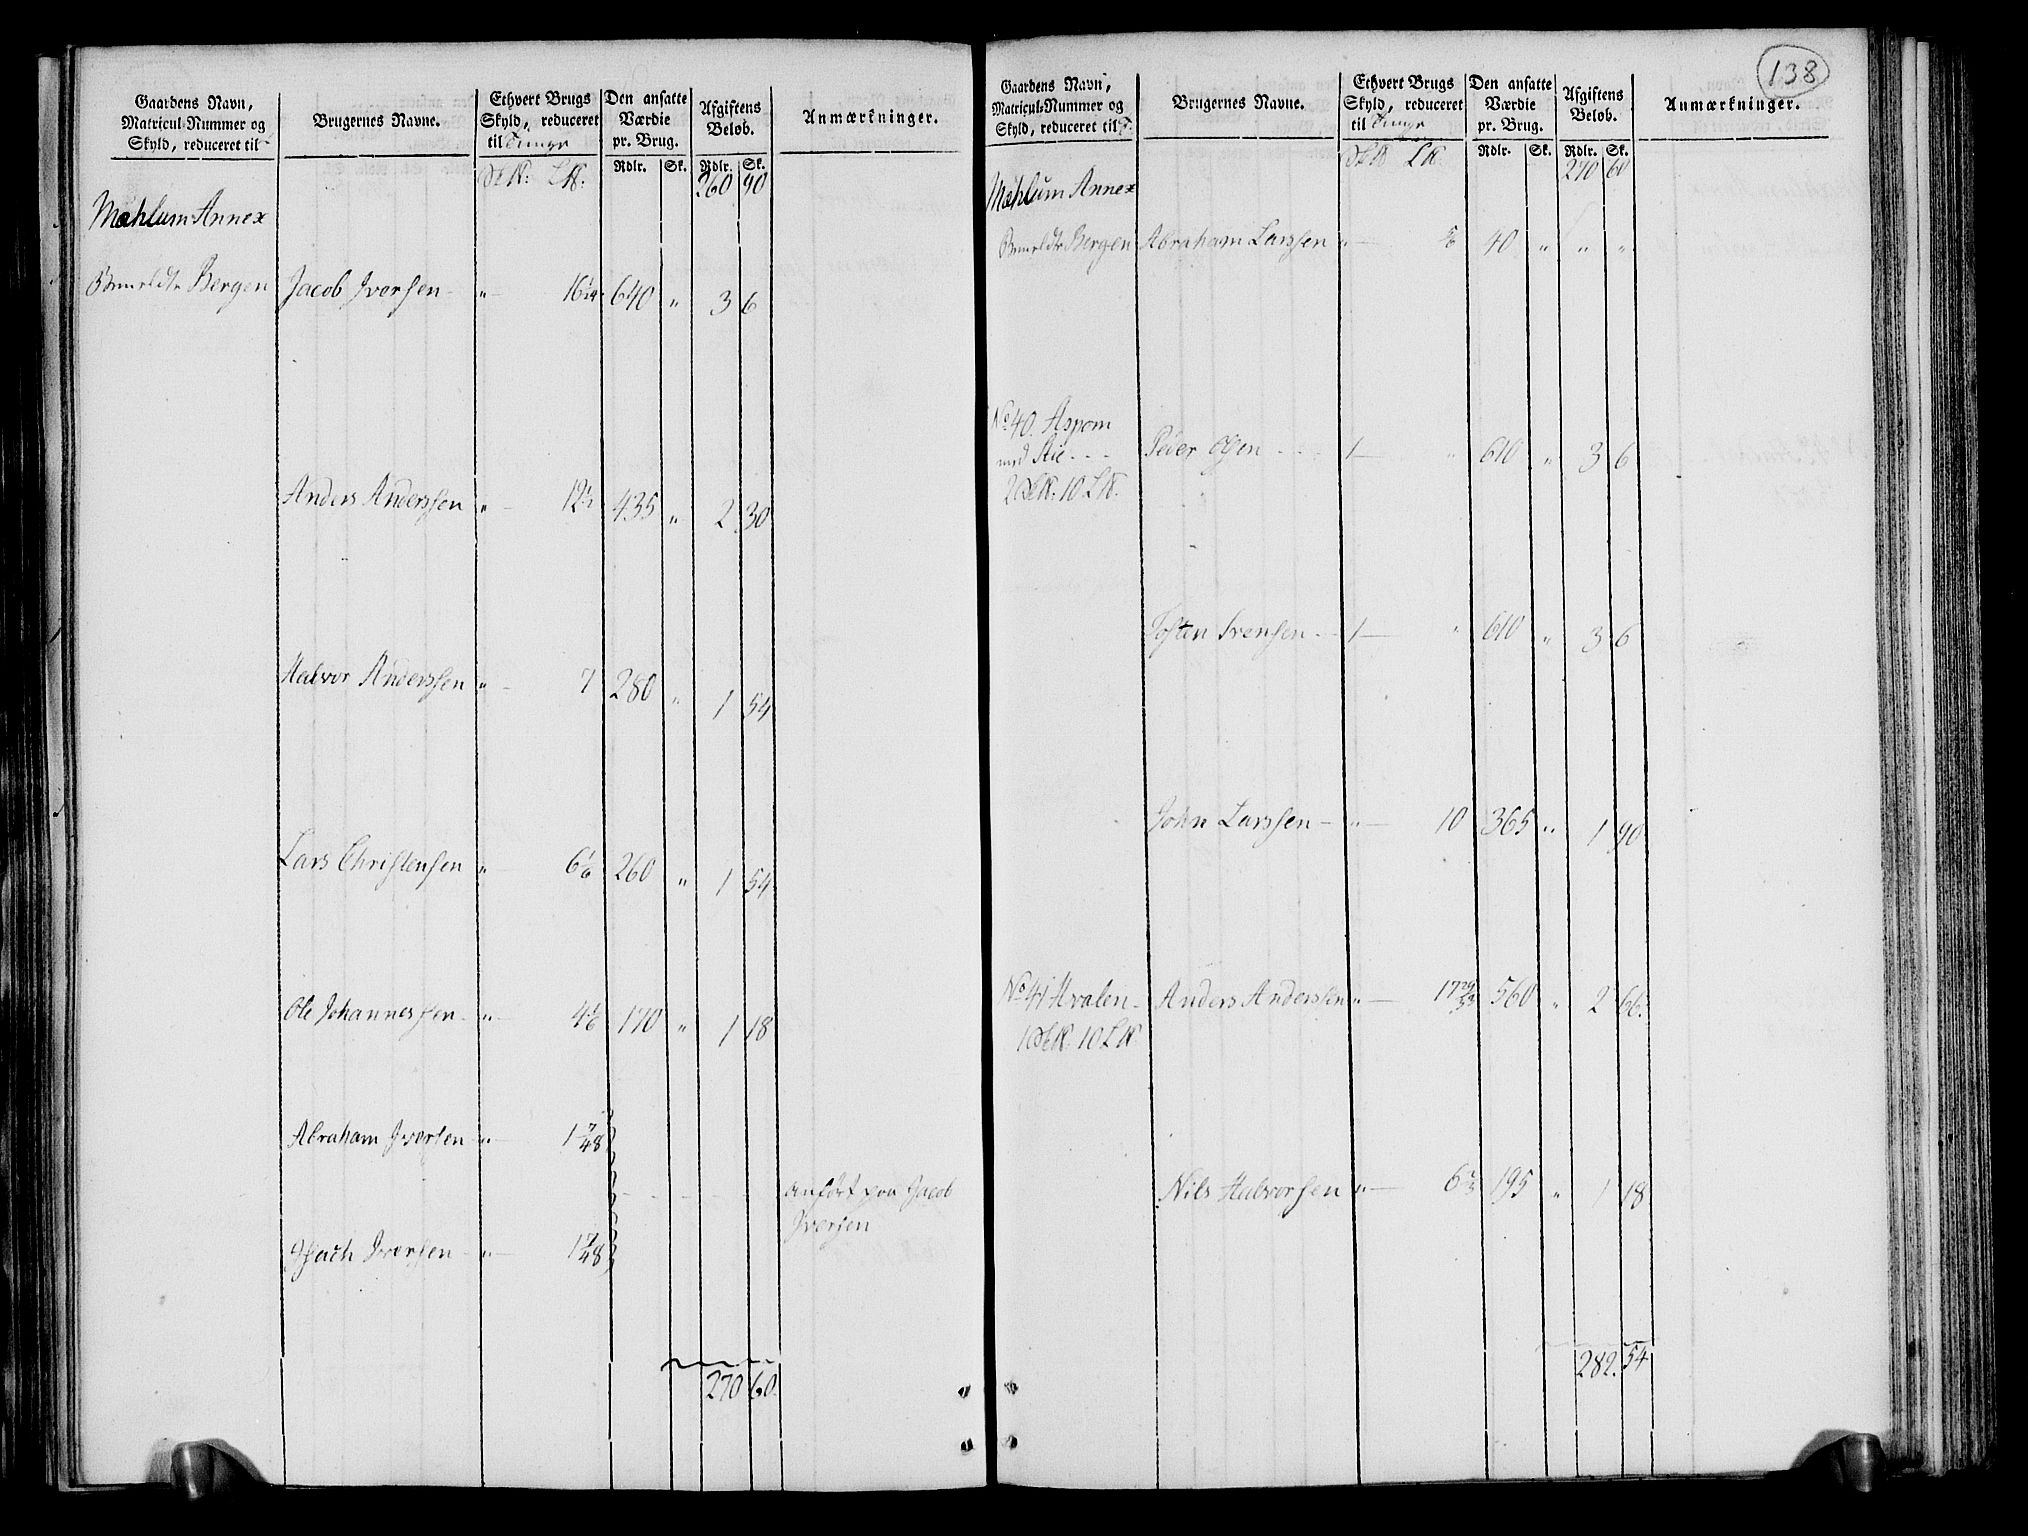 Gaardens Navn,
Matricul-Nummer og
Skyld, reduceret til
Brugernes Navne.
Ethvert Brugs
Skyld, reduceret
til Tunge
Den ansatte
Værdie
pr. Brug.
Rdlr. Sk.
Afgiftens
Beløb.
Rdlr. Sk.
Anmærkninger.
260 90
Mæhlum Annex
Bergen Jacob Iversen " 640 " 3 6
Anders Anderssen " 12½ 435 " 2 30
Halvor Anderssen " 7 280 " 1 54
Lars Christensen " 6 1/6 260 " 1 54
Ole Johannessen " 4 1/6 170 " 1 18
Abraham Iversen " 1 7/48
anført paa Jacob
Iversen
Isach Iversen " 1 7/48
270 60
138
Gaardens Navn,
Matricul-Nummer og
Skyld, reduceret til T.
Brugernes Navne.
Ethvert Brugs
Skyld, reduceret
til Tunge
Den ansatte
Værdie
pr. Brug.
Rdlr. Sk.
Afgiftens
Beløb.
Rdlr. Sk.
Anmærkninger.
270 60
Mæhlum Annex
Bergen Abraham Larssen " 40 " " "
No 40. Aspom
med Stie
Peder Olsen 1 " 610 " 3 6
Tosten Svensen 1 " 610 " 3 6
John Larssen " 10 365 " 1 90
No 41 Hvalen Anders Anderssen " 560 " 2 66
Nils Halvorsen " 6 2/3 195 " 1 18
282. 54